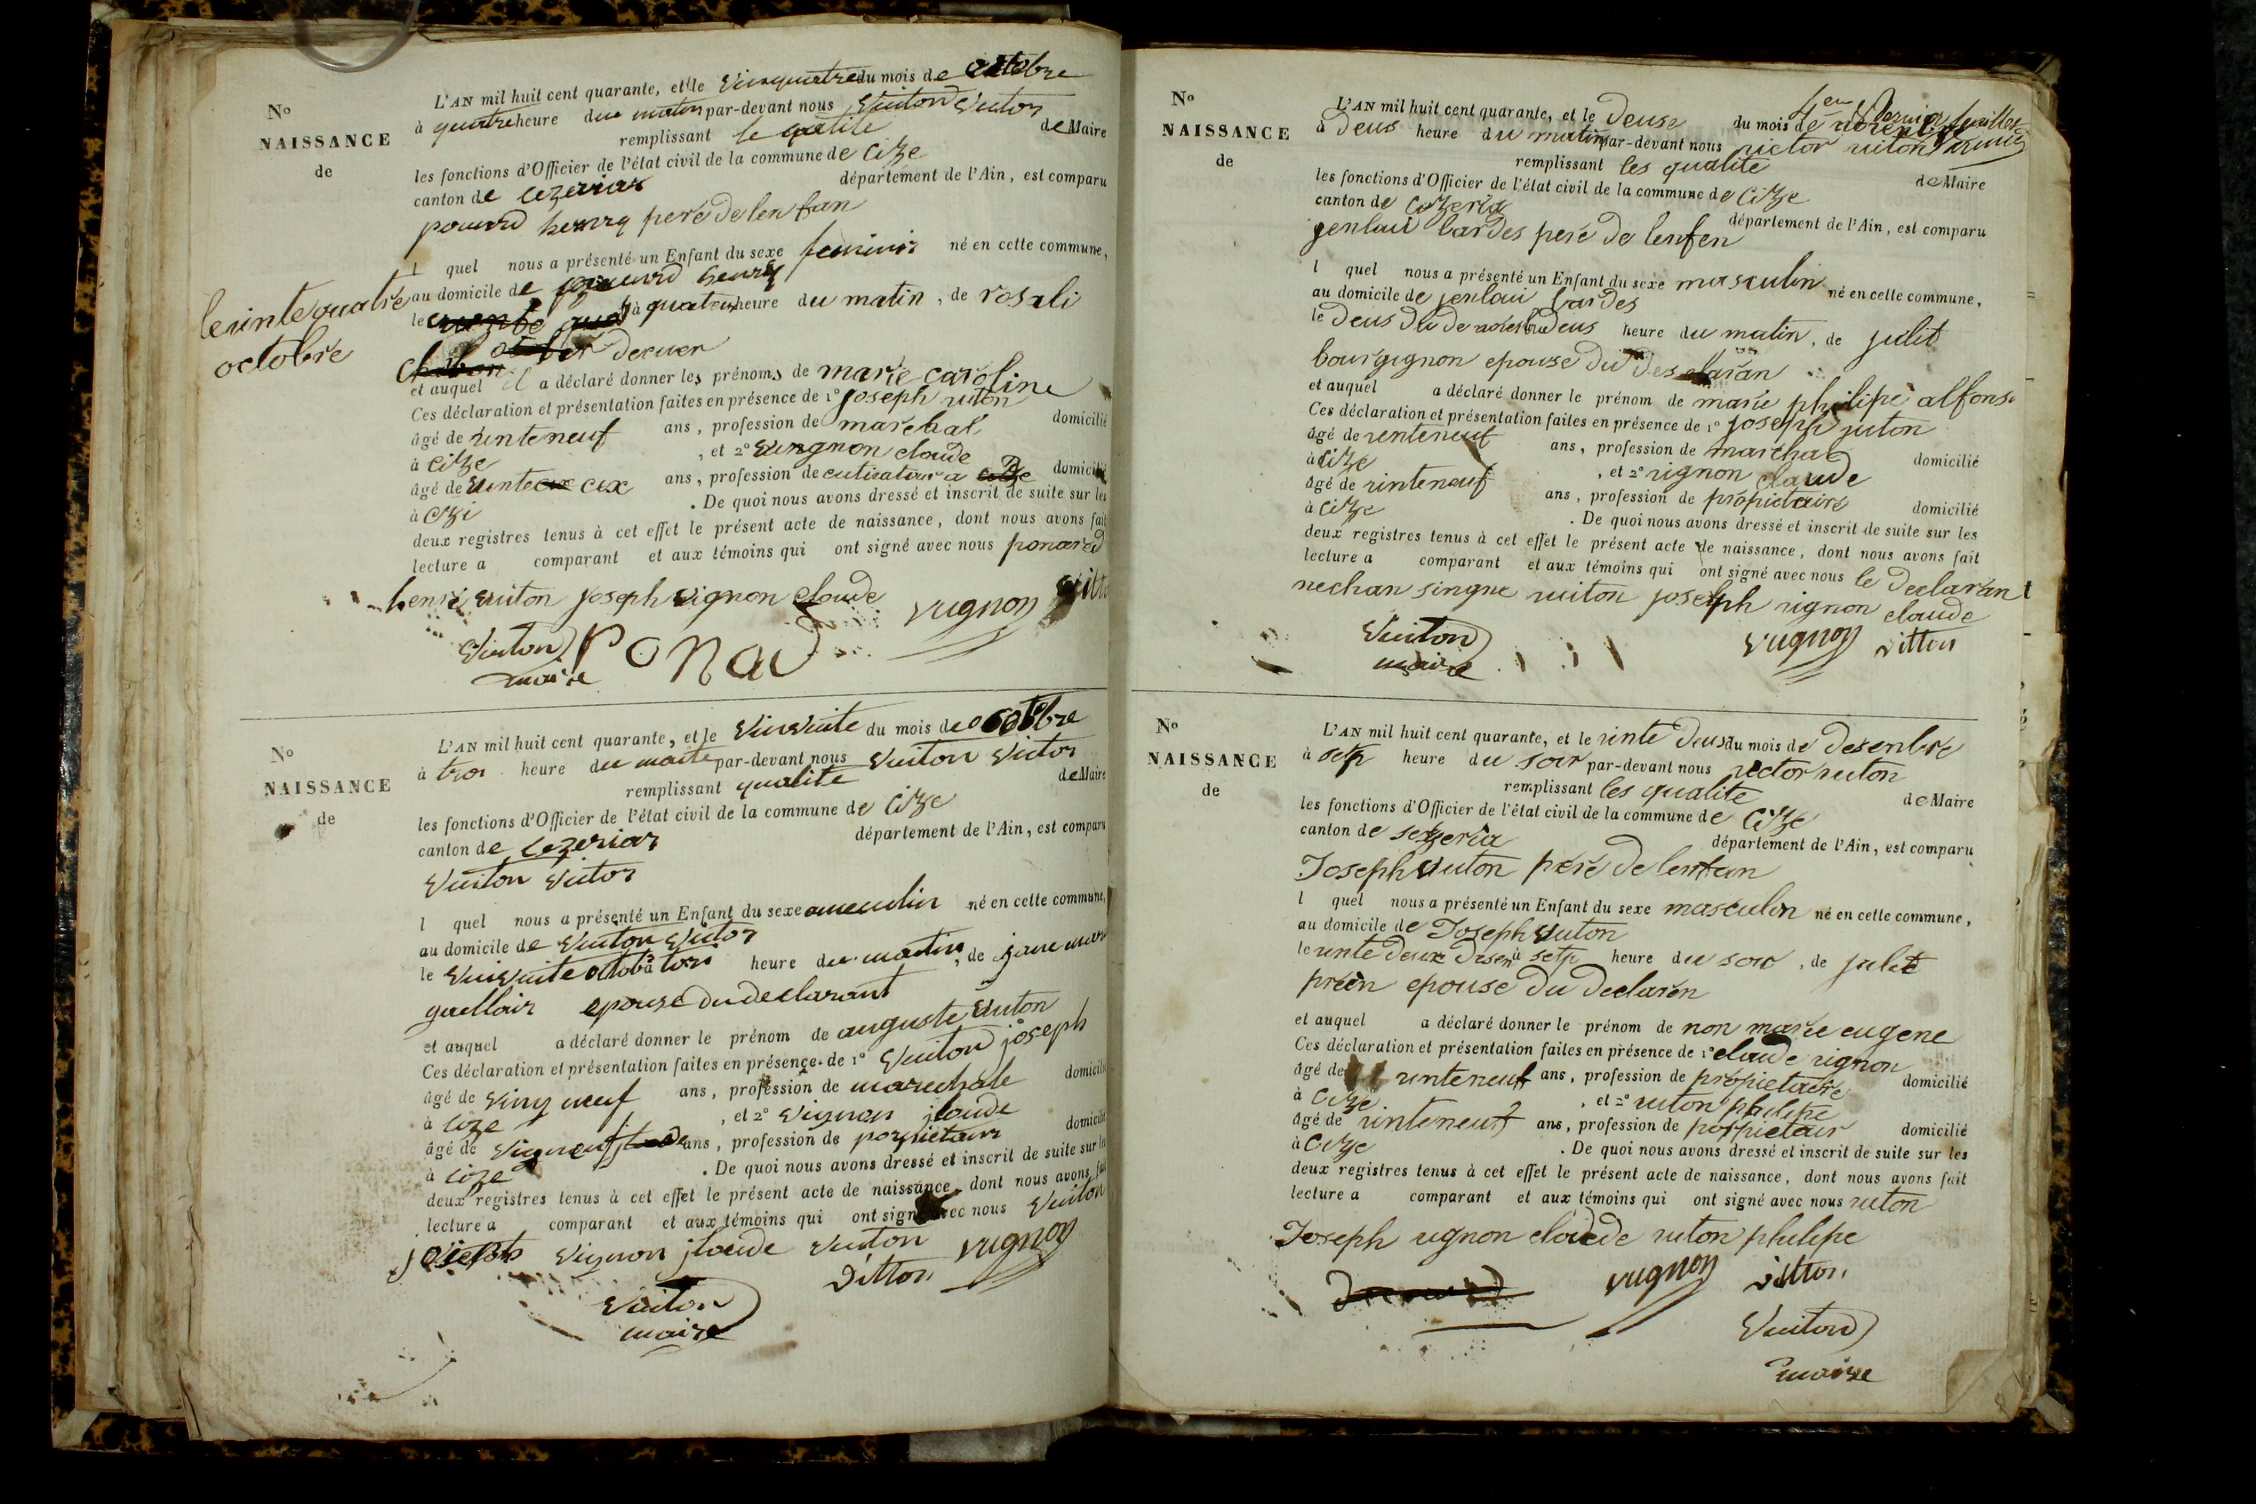 No
NAISSANCE
de
L'AN mil huit cent quarante, et le vinquatre du mois de octobre
à quatre heure du matin par-devant nous Vuiton Victor
remplissant le qualite de Maire
les fonctions d'Officier de l'état civil de la commune de Cize
canton de cezeriat département de l'Ain, est comparu
henry pere de lenfan
l quel nous a présenté un Enfant du sexe feminin né en cette commune,
au domicile de henry
le à quatre heure du matin, de rosali
le vinte quatre
octobre
et auquel il a déclaré donner les prénoms de marie caroline
Ces déclaration et présentation faites en présence de 1º joseph viton
âgé de vinteneuf ans, profession de marchal domicilié
à Cize, et 2º vingnon claude
âgé de vinte cix ans, profession de cultivateur a domicilié
à cizi. De quoi nous avons dressé et inscrit de suite sur les
deux registres tenus à cet effet le présent acte de naissance, dont nous avons fait
lecture a comparant et aux témoins qui ont signé avec nous ponard
henri vuiton joseph vignon cloude
vugnon
Vuiton Ponad
maire
No
NAISSANCE
de
L'AN mil huit cent quarante, et le vinvuite du mois de octobre
à troi heure du matin par-devant nous Vuiton Victor
remplissant qualite de Maire
les fonctions d'Officier de l'état civil de la commune de Cize
canton de cezeriat département de l'Ain, est comparu
Vuiton Victor
l quel nous a présenté un Enfant du sexe né en cette commune,
au domicile de Vuiton Victor
le vinvuite octob à toroi heure du matin, de jane mari
epouse du declarant
et auquel a déclaré donner le prénom de auguste vuiton
Ces déclaration et présentation faites en présence de 1º Vuiton joseph
âgé de ving neuf ans, profession de marechale domicilié
à cize, et 2º vignon jloude
âgé de vigneuf ans, profession de domicilié
à cize. De quoi nous avons dressé et inscrit de suite sur les
deux registres tenus à cet effet le présent acte de naissance, dont nous avons fait
lecture a comparant et aux témoins qui ont signé avec nous Vuiton
joseph vignon jloude vuiton vugnon
vitton
Vuiton
maire
No
NAISSANCE
de
L'AN mil huit cent quarante, et le deuse du mois de novenbre
à deus heure du matin par-devant nous victor viton
remplissant les qualite de Maire
les fonctions d'Officier de l'état civil de la commune de Cize
canton de cezeria département de l'Ain, est comparu
jenlaui bardes pere de lenfen
l quel nous a présenté un Enfant du sexe masculin né en cette commune,
au domicile de jenlaui bardes
le deus du de deus heure du matin, de julit
bourgignon epouse du
et auquel a déclaré donner le prénom de marie philipe alfonse
Ces déclaration et présentation faites en présence de 1º joseph viton
âgé de venteneuf ans, profession de marchal domicilié
à Cize, et 2º vignon claude
âgé de vinteneuf ans, profession de propietaire domicilié
à cize. De quoi nous avons dressé et inscrit de suite sur les
deux registres tenus à cet effet le présent acte de naissance, dont nous avons fait
lecture a comparant et aux témoins qui ont signé avec nous le declarant
nechan singne viton joselph vignon claude
Vuiton vugnon vitton
maire
No
NAISSANCE
de
L'AN mil huit cent quarante, et le vinte deus du mois de desenbre
à setp heure du soir par-devant nous victor viton
remplissant les qualite de Maire
les fonctions d'Officier de l'état civil de la commune de Cize
canton de sezeria département de l'Ain, est comparu
Joseph viton pere de lenfan
l quel nous a présenté un Enfant du sexe masculin né en cette commune,
au domicile de Joseph viton
le vinte deux desen à setp heure du soir, de julit
preen epouse du declaren
et auquel a déclaré donner le prénom de non marie eugene
Ces déclaration et présentation faites en présence de 1º claude vignon
âgé de vinteneuf ans, profession de propietaire domicilié
à cize, et 2º viton philipe
âgé de vinteneuf ans, profession de porpietair domicilié
à Cize. De quoi nous avons dressé et inscrit de suite sur les
deux registres tenus à cet effet le présent acte de naissance, dont nous avons fait
lecture a comparant et aux témoins qui ont signé avec nous viton
Joseph vignon claude viton philipe
vugnon vitton
Vuiton
maire